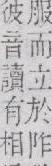 服而立於阼
彼音讀有相